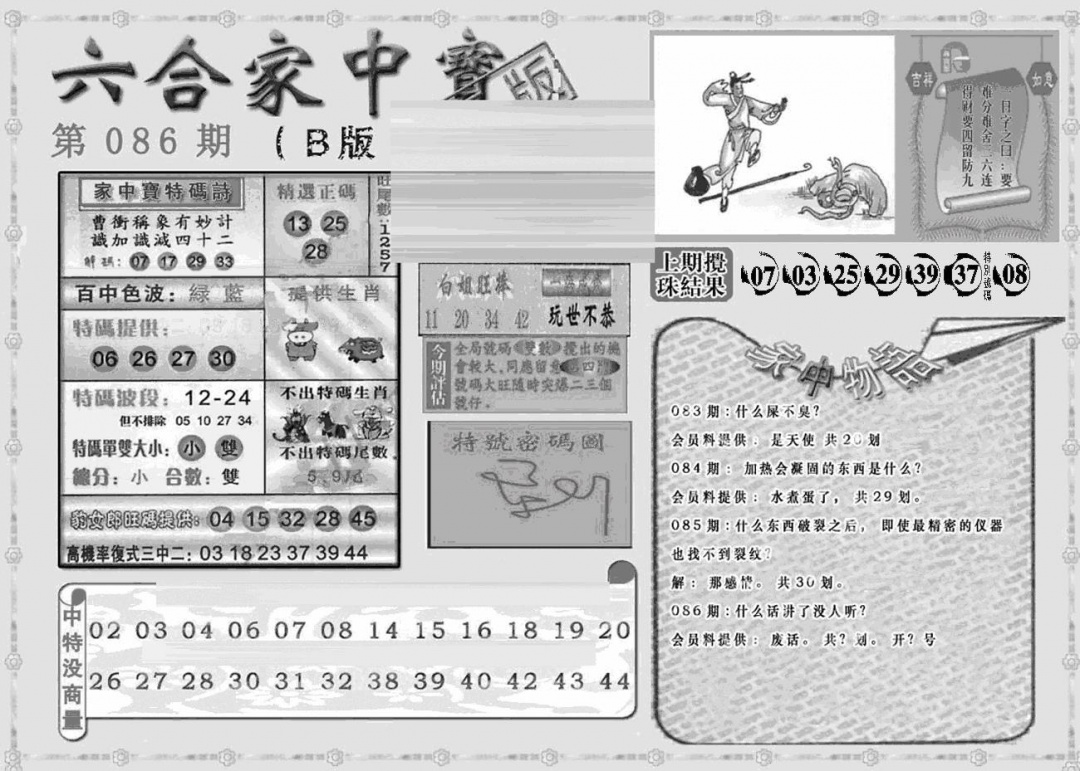 六合家中寶
版
第 086 期 (B版
家中寶特碼詩
曹衝稱象有妙計
識加識減四十二
解碼: 07 17 29 33
精選正碼
13 25
28
旺尾數:1257
百中色波: 綠 藍
提供生肖
特碼提供:
06 26 27 30
特碼波段: 12-24
但不排除 05 10 27 34
特碼單雙大小: 小 雙
總分: 小 合數: 雙
不出特碼生肖
不出特碼尾數
豹女郎旺碼提供: 04 15 32 28 45
高機率復式三中二: 03 18 23 37 39 44
白姐旺棒
11 20 34 42
玩世不恭
今期評估
全局號碼雙數攪出的機
會較大,同應留意第四
號碼大旺隨時突爆二三個
號仔。
特號密碼圖
吉祥
如意
一日字之曰:要
难分难舍二六连
得财要四留防九
上期攪珠結果
07 03 25 29 39 37 特別號碼 08
家中物語
083 期:什么屎不臭?
会员料提供: 是天使 共 20 划
084 期: 加热会凝固的东西是什么?
会员料提供: 水煮蛋了, 共 29 划。
085 期:什么东西破裂之后, 即使最精密的仪器
也找不到裂纹?
解: 那感情。 共 30 划。
086 期:什么话讲了没人听?
会员料提供: 废话。 共? 划。 开? 号
中特没商量
02 03 04 06 07 08 14 15 16 18 19 20
26 27 28 30 31 32 38 39 40 42 43 44